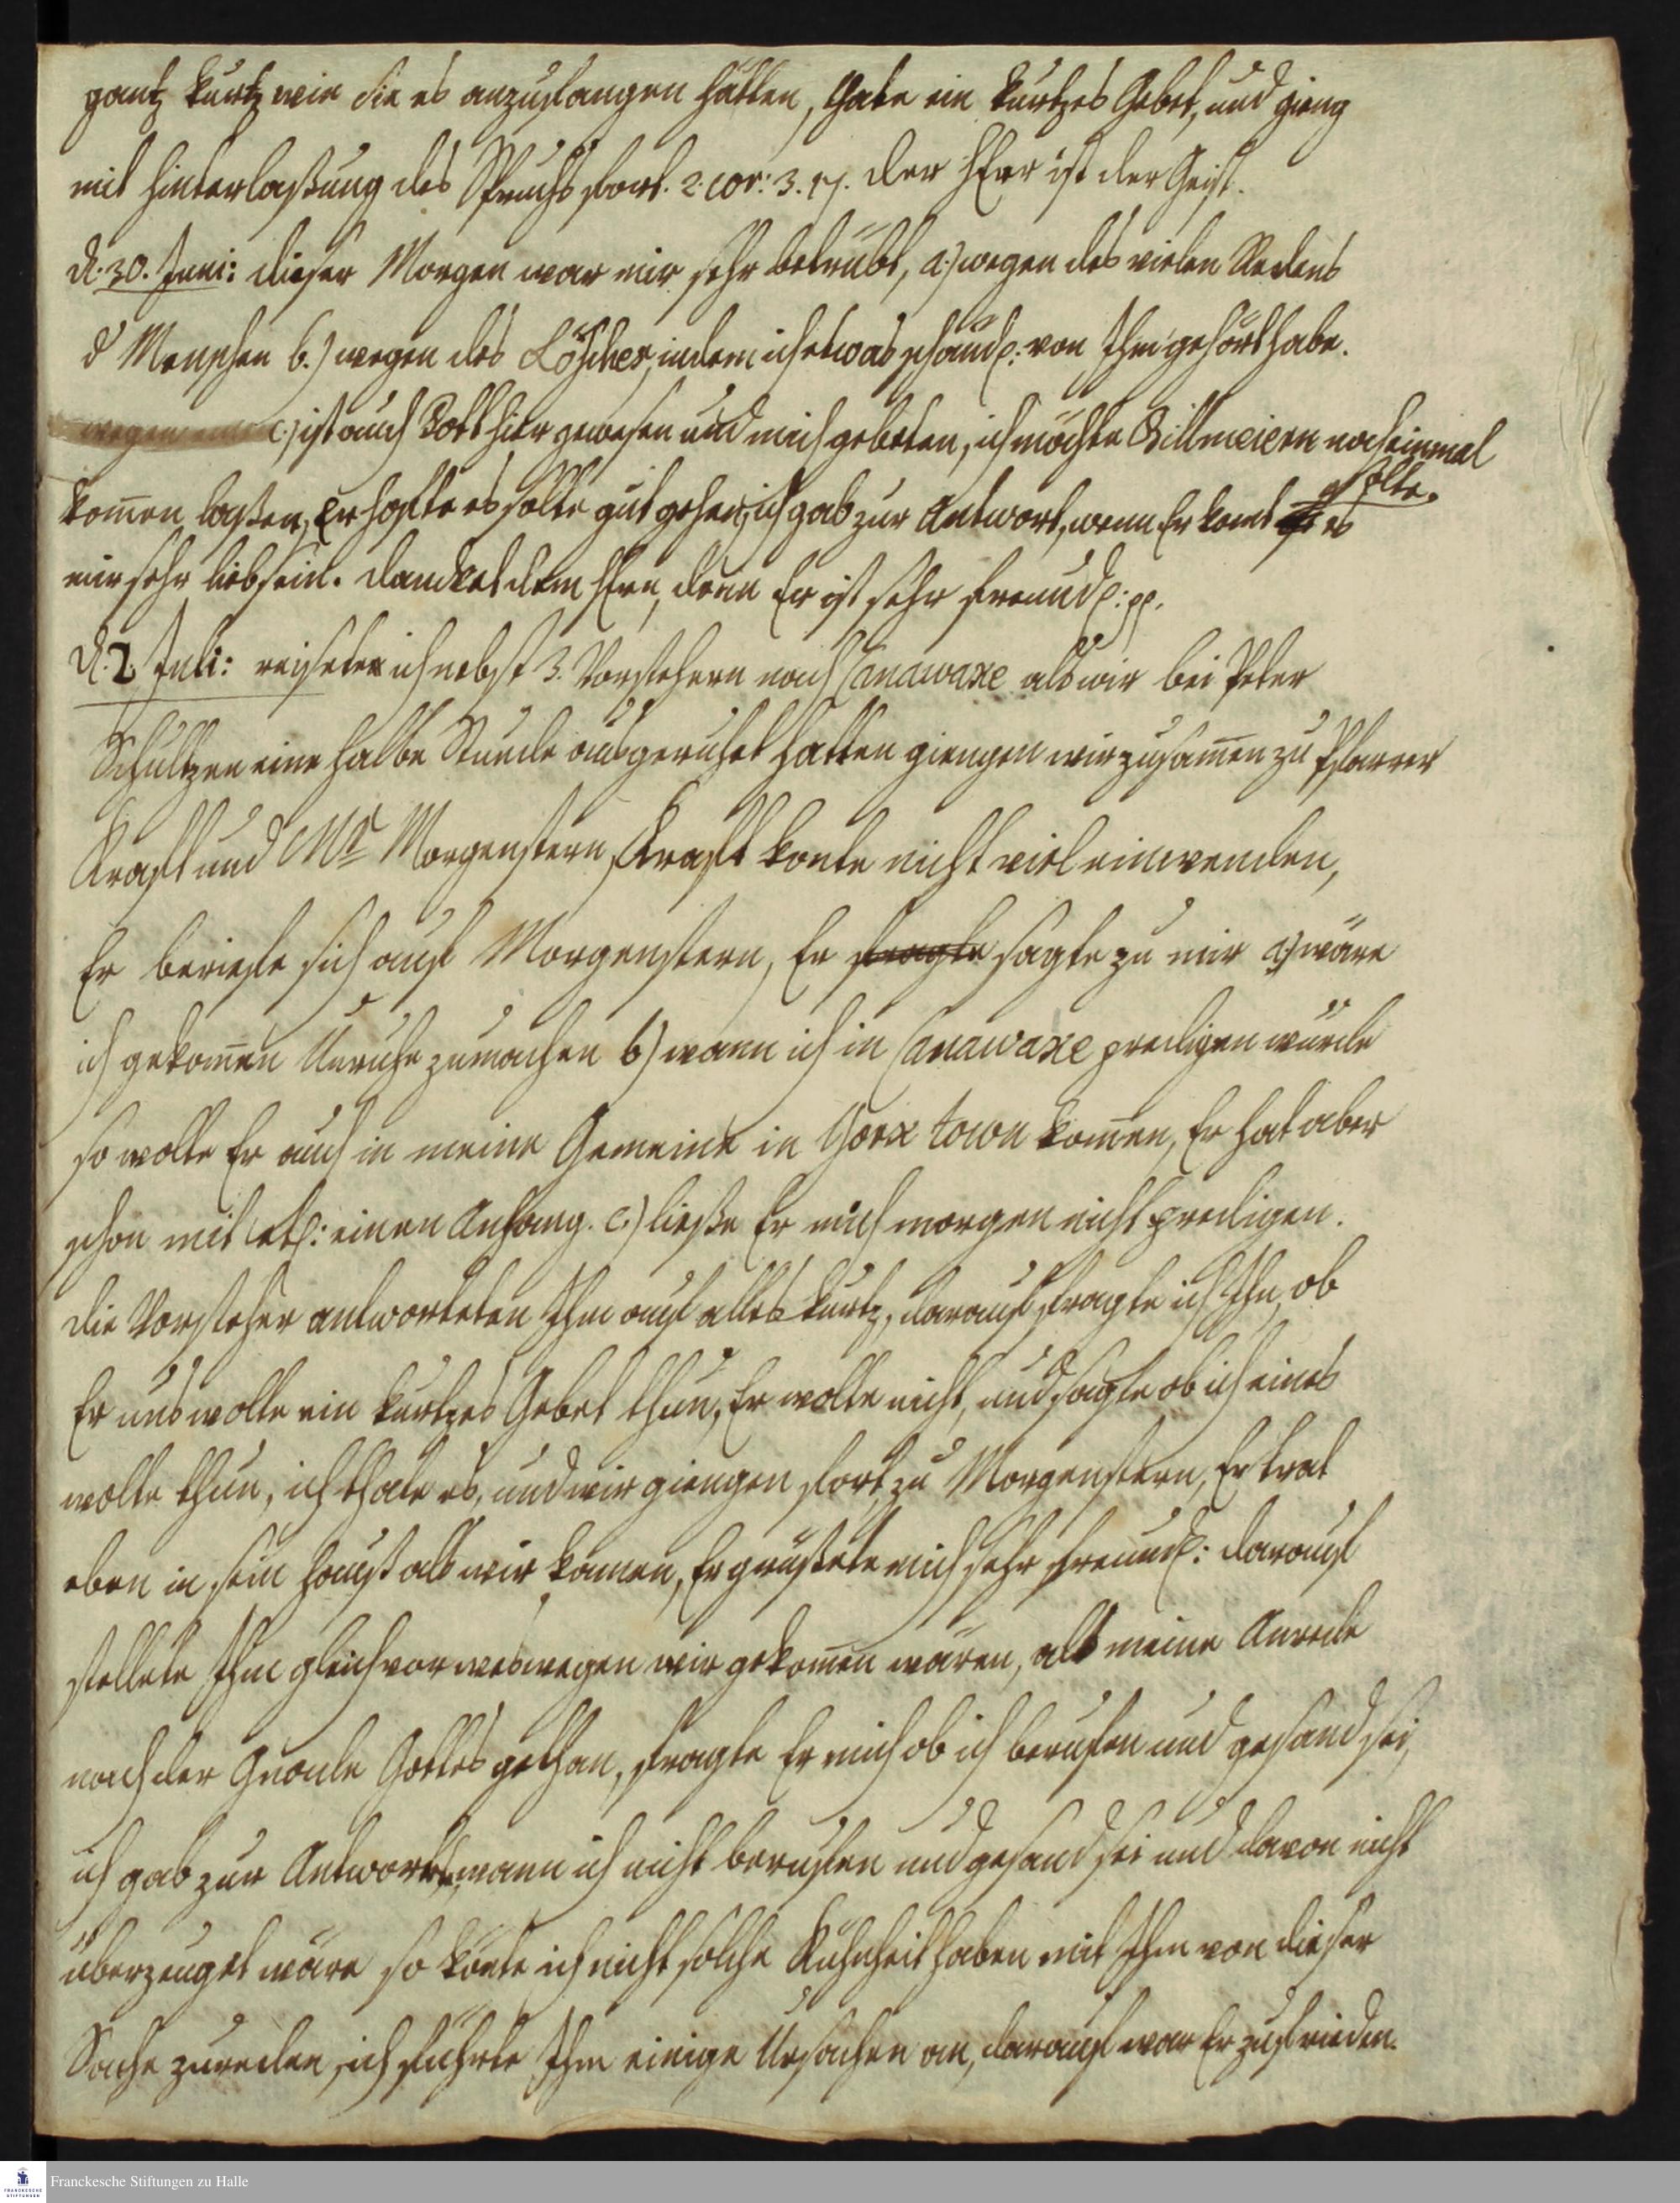 gantz kurtz wie sie es anzufangen hätten, thate ein kurtzes Gebet, und gieng
mit Hinterlaßung des Spruchs fort. 2. Cor: 3. 17. der HErr ist der Geist.
d. 30. Juni: dieser Morgen war mir sehr betrübt, a.) wegen des vielen Redens
d Menschen b.) wegen des Löscher, indem ich etwas schändl: von Ihm gehört habe.
wegen c.) ist auch Bott hier gewesen und mich gebeten, ich möchte Billmeiern noch einmal
kom̅en laßen, Er hofte es solte gut gehen, ich gab zur Antwort, wenn Er komt es
solte
mir sehr lieb sein. dancket dem HErn, denn Er ist sehr freundl: pp.
d. 2. Juli: reisete ich nebst 3. Vorstehern nach Canawake als wir bei Peter
Schultzen eine halbe Stunde ausgeruhet hatten giengen wir zusam̅en zu Pfarrer
Kraft und Mr Morgenstern, Kraft konte nicht viel einwenden,
Er beriefe sich auf Morgenstern, Er fragte sagte zu mir a) wäre
ich gekom̅en Unruhe zumachen b) wann ich in Canawake predigen würde
so wolte Er auch in meine Gemeine in York town kom̅en, Er hat aber
schon mit einen Anfang. c.) ließe Er mich morgen nicht predigen.
die Vorsteher antworteten Ihm auf alles kurtz, darauf fragte ich Ihn, ob
Er uns wolte ein kurtzes Gebet thun, Er wolte nicht, und sagte ob ich eines
wolte thun, ich thate es, und wir giengen fort, zu Morgenstern, Er trat
eben in sein Hauß als wir kamen, Er grüßete mich sehr freundl: darauf
stellete Ihm gleich vor weswegen wir gekom̅en wären, als meine Anrede
nach der Gnade Gottes gethan, fragte Er mich ob ich berufen und gesand sei,
ich gab zur Antwort, wann ich nicht berufen und gesand sei und davon nicht
überzeuget wäre so könte ich nicht solche Kühnheit haben mit Ihm von dieser
Sache zureden, ich führte Ihm einige Ursachen an, darauf war Er zufrieden.
Franckesche Stiftungen zu Halle